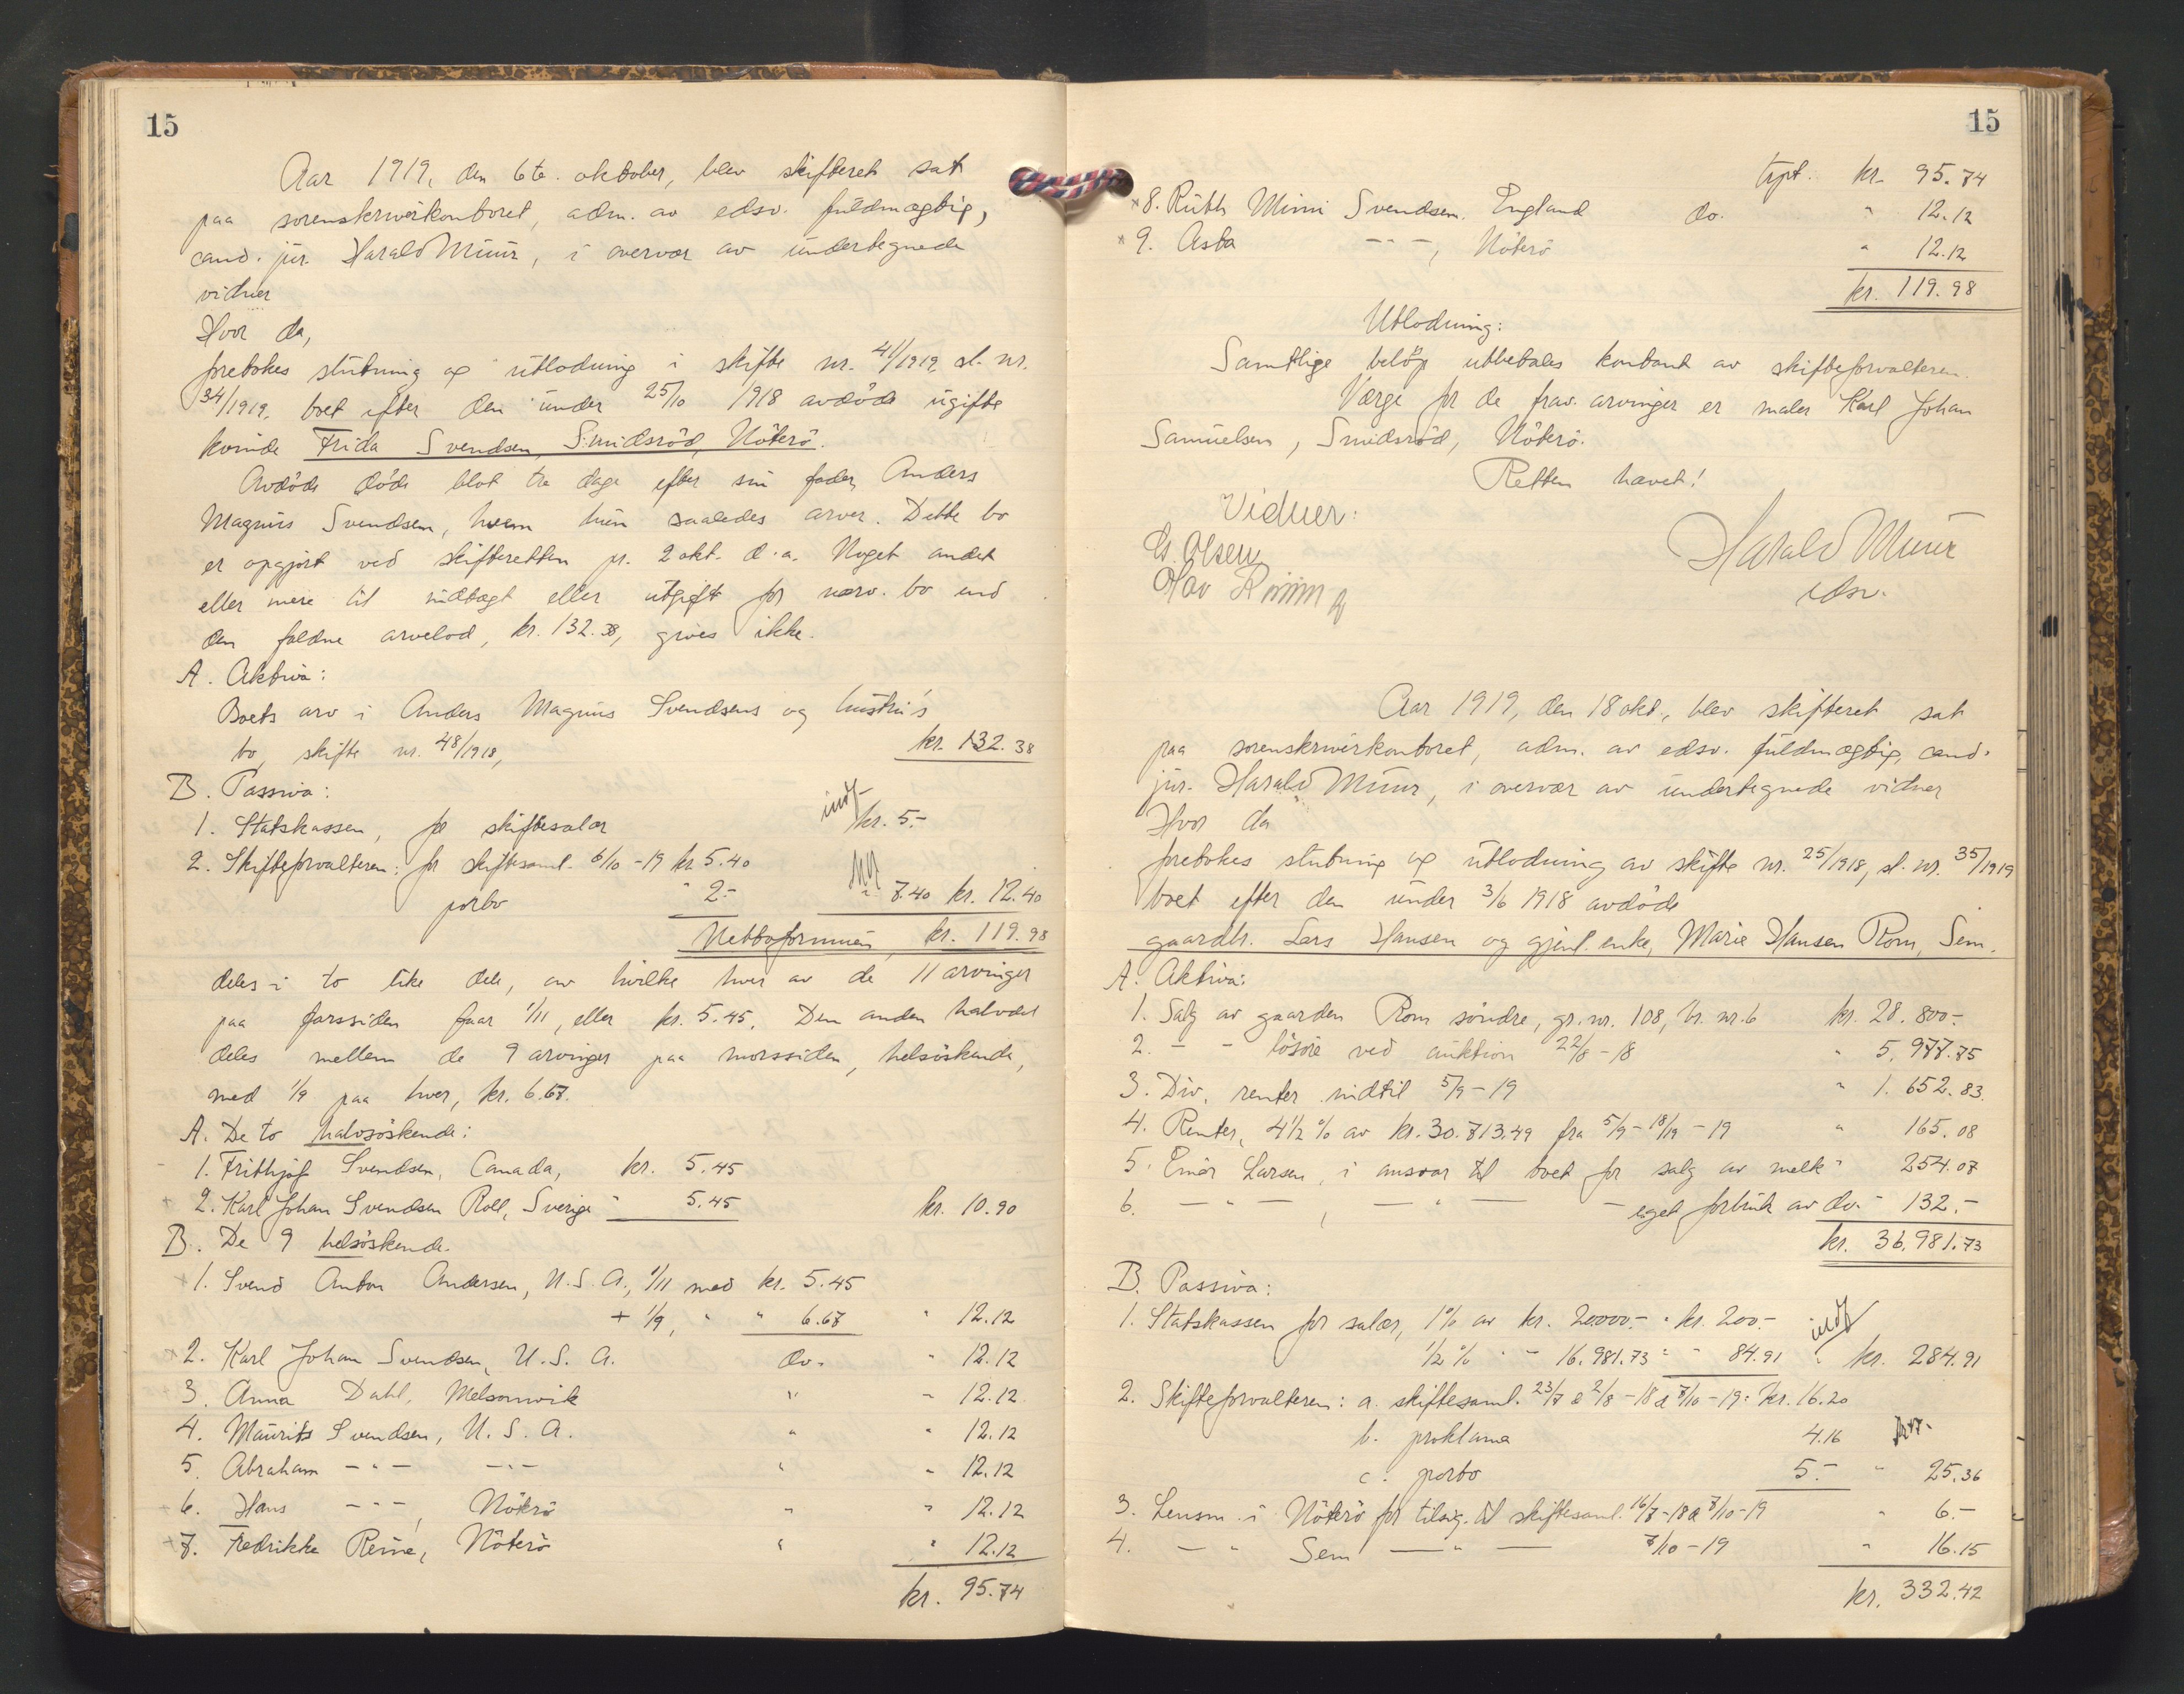 15
Aar 1919, den 6te. oktober, blev skifteret sat
paa sorenskriverkontoret, adm. av edsv. fuldmægtig,
cand. jur. Harald Muur, i overvær av undertegnede
vidner
Hvor da,
foretokes slutning og utlodning i skifte nr. 41/1919, sl. nr.
34/1919, boet efter den under 25/10 1918 avdöde ugifte
kvinde Frida Svendsen, Smidsröd, Nöterö.
Avdöde döde blot tre dage efter sin fader, Anders
Magnus Svendsen, hvem hun saaledes arver. Dette bo
er opgjort ved skifteretten pr. 2 okt. d.a. Noget andet
eller mere til indtægt eller utgift for nærv. bo end
den faldne arvelod, kr. 132.38, gives ikke.
A. Aktiva:
Boets arv i Anders Magnus Svendsens og hustru's
bo, skifte nr. 48/1918, kr. 132.38
B. Passiva:
1. Statskassen, for skiftesalær kr. 5.-
2. Skifteforvalteren: for skiftesaml. 6/10-19 kr. 5.40
porto " 2.- " 7.40 kr. 12.40
Nettoformuen, kr. 119.98
deles i to like dele, av hvilke hver av de 11 arvinger
paa farssiden faar 1/11, eller kr. 5.45. Den anden halvdel
deles mellem de 9 arvinger paa morssiden, helsöskende,
med 1/9 paa hver, kr. 6.67.
A. De to halvsöskende:
1. Frithjof Svendsen, Canada, kr. 5.45
+ 2. Karl Johan Svendsen Roll, Sverige " 5.45 kr. 10.90
B. De 9 helsöskende.
1. Svend Anton Andersen, U.S.A., 1/11 med kr. 5.45
+ 1/9, " " 6.67 " 12.12
2. Karl Johan Svendsen, U.S.A. do. " 12.12
3. Anna Dahl, Melsomvik " " 12.12
4. Maurits Svendsen, U.S.A. " " 12.12
5. Abraham -"- -"- " " 12.12
6. Hans -"-, Nöterö " " 12.12
7. Fredrikke Reine, Nöterö " " 12.12
kr. 95.74
15
trpt. kr. 95.74
x 8. Ruth Mimi Svendsen. England do. " 12.12
x 9. Asta -"-, Nöterö " 12.12
kr. 119.98
Utlodning:
Samtlige belöp utbetales kontant av skifteforvalteren.
Værge for de frav. arvinger er maler Karl Johan
Samuelsen, Smidsröd, Nöterö.
Retten hævet!
Vidner:
G. Olsen
Harald Muur
edsv.
Aar 1919, den 18 okt., blev skifteret sat
paa sorenskriverkontoret, adm. av edsv. fuldmægtig, cand.
jur. Harald Muur, i overvær av undertegnede vidner
Hvor da
foretokes slutning og utlodning av skifte nr. 25/1918, sl. nr. 35/1919
boet efter den under 3/6 1918 avdöde
gaardbr. Lars Hansen og gjenl. enke, Marie Hansen Rom, Sem.
A. Aktiva:
1. Salg av gaarden Rom söndre, gr. nr. 108, br. nr. 6 kr. 28.800.-
2. - - lösöre ved auktion 22/8-18 " 5.977.75
3. Div. renter indtil 5/9-19 " 1.652.83.
4. Renter, 4 1/2 % av kr. 30.713.49 fra 5/9-18/19-19 " 165.08
5. Einar Larsen, i ansvar til boet for salg av melk " 254.07
6. -"-, -"- - eget forbruk av do. " 132.-
kr. 36,981.73
B. Passiva:
1. Statskassen for salær, 1% av kr. 20.000.- " kr. 200.-
1/2 % " - 16.981.73 " " 84.91 " kr. 284.91
2. Skifteforvalteren: a. skiftesaml. 23/7 & 2/8-18 & 7/10-19: kr. 16.20
b. proklama 4.16
c. porto 5.- " 25.36
3. Lensm. i Nöterö for tilsig. til skiftesaml. 16/7-18 & 7/10-19 " 6.-
4. -"- Sem -"- 7/10-19 " 16.15
kr. 332.42